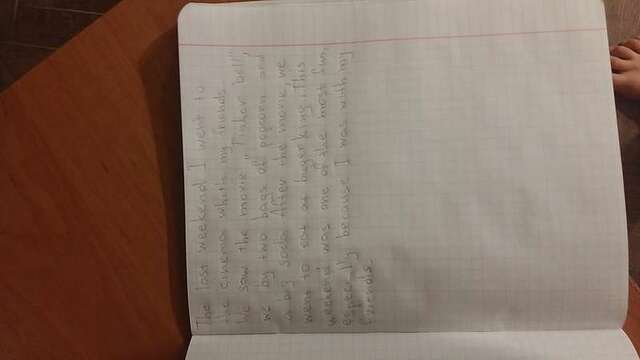 The last weekend I went to
the cinema whith my friends.
We saw the movie „Tinker bell",
we by two bags of popcorn and
a big soda. After the movie, we
went to eat at buger king. This
weekend was one of the most fun,
especially because I was with my
friends.